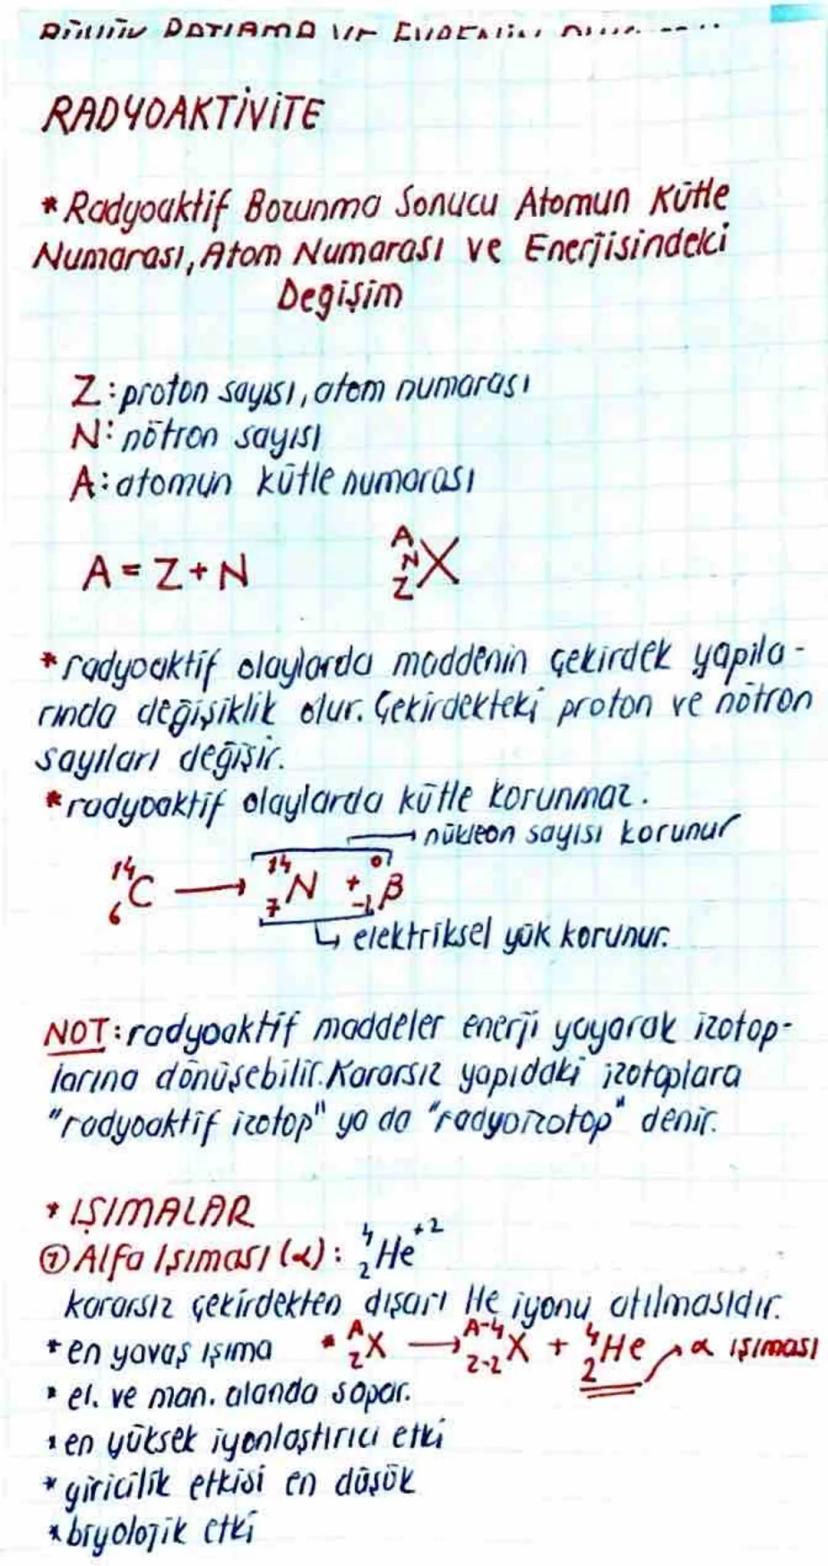 RADYOAKTİVİTE
* Radyoaktif Bozunma Sonucu Atomun Kütle
Numarası, Atom Numarası ve Enerjisindeki
Değişim
Z: proton sayısı, atom numarası
N: nötron sayısı
A: atomun kütle numarası
A = Z + N    A N Z X
* radyoaktif olaylarda maddenin çekirdek yapıla-
rında değişiklik olur. Çekirdekteki proton ve nötron
sayıları değişir.
* radyoaktif olaylarda kütle korunmaz.
→ nükleon sayısı korunur
¹⁴₆C → ¹⁴₇N + ⁰₋₁β
↳ elektriksel yük korunur.
NOT: radyoaktif maddeler enerji yayarak izotop-
larına dönüşebilir. Kararsız yapıdaki izotoplara
"radyoaktif izotop" ya da "radyoizotop" denir.
* IŞIMALAR
① Alfa Işıması (α): ⁴₂He⁺²
kararsız çekirdekten dışarı He iyonu atılmasıdır.
* en yavaş ışıma * ᴬ_Z X → ᴬ⁻⁴_Z-2 X + ⁴₂He → α ışıması
* el. ve man. alanda sapar.
* en yüksek iyonlaştırıcı etki
* giricilik etkisi en düşük
* biyolojik etki